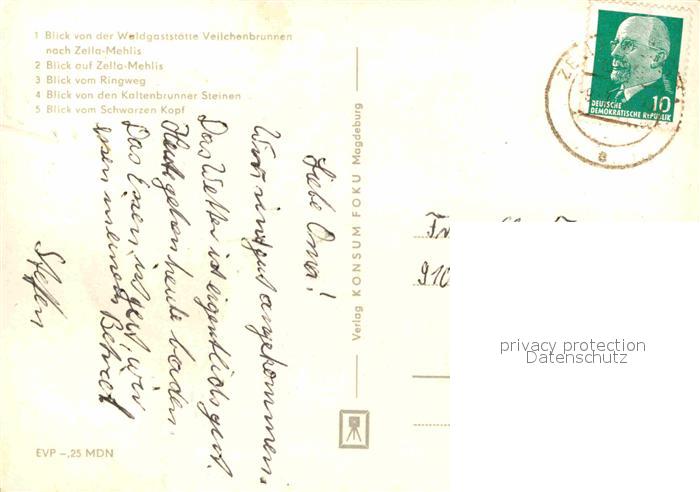 1 Blick von der Waldgaststätte Veilchenbrunnen
nach Zella-Mehlis
2 Blick auf Zella-Mehlis
3 Blick vom Ringweg
4 Blick von den Kaltenbrunner Steinen
5 Blick vom Schwarzen Kopf
Liebe Oma!
Wir sind gut angekommen.
Das Wetter ist eigentlich gut.
gehen heute baden.
Das Essen ist gut, wir
essen in einem
Steffen
EVP -,25 MDN
Verlag KONSUM FOKU Magdeburg
10
DEUTSCHE
DEMOKRATISCHE REPUBLIK
ZE
a
910
privacy protection
Datenschutz